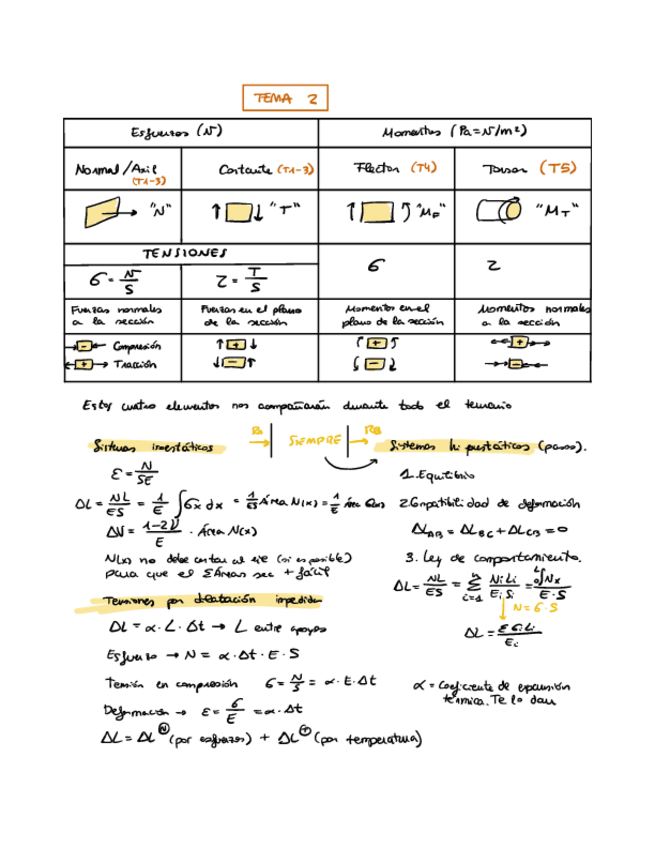 TEMA 2
Esfuerzos (N)
Momentos (Pa = N/m²)
Normal / Axil (T1-3)
Cortante (T1-3)
Flector (T4)
Torsor (T5)
"N"
"T"
"MF"
"MT"
TENSIONES
6 = N/S
Z = T/S
6
Z
Fuerzas normales a la sección
Fuerzas en el plano de la sección
Momentos en el plano de la sección
Momentos normales a la sección
- Compresión
+ Tracción
+
-
+
-
+
-
Estos cuatro elementos nos acompañarán durante todo el temario
Sistemas isostáticos
RA
SIEMPRE
RB
Sistemas hiperestáticos (pasos).
Ɛ = N/SE
ΔL = NL/ES = 1/E ∫6x dx = 1/ES Área N(x) = 1/E Área
ΔV = 1-2ν/E · Área N(x)
N(x) no debe cortar al eje (si es posible)
para que el ΣÁreas sea + fácil
1. Equilibrio
2. Compatibilidad de deformación
ΔLAB = ΔLBC + ΔLCB = 0
3. Ley de comportamiento.
ΔL = NL/ES = Σ Ni Li/Ei Si = ∫Nx/E·S
N = 6·S
ΔL = Σ6iLi/Ei
Tensiones por dilatación impedida
ΔL = α · L · Δt → L entre apoyos
Esfuerzo → N = α · Δt · E · S
Tensión en compresión 6 = N/S = α · E · Δt
Deformación → Ɛ = 6/E = α · Δt
ΔL = ΔL(N) (por esfuerzos) + ΔL(T) (por temperatura)
α = Coeficiente de expansión
térmica. Te lo dan